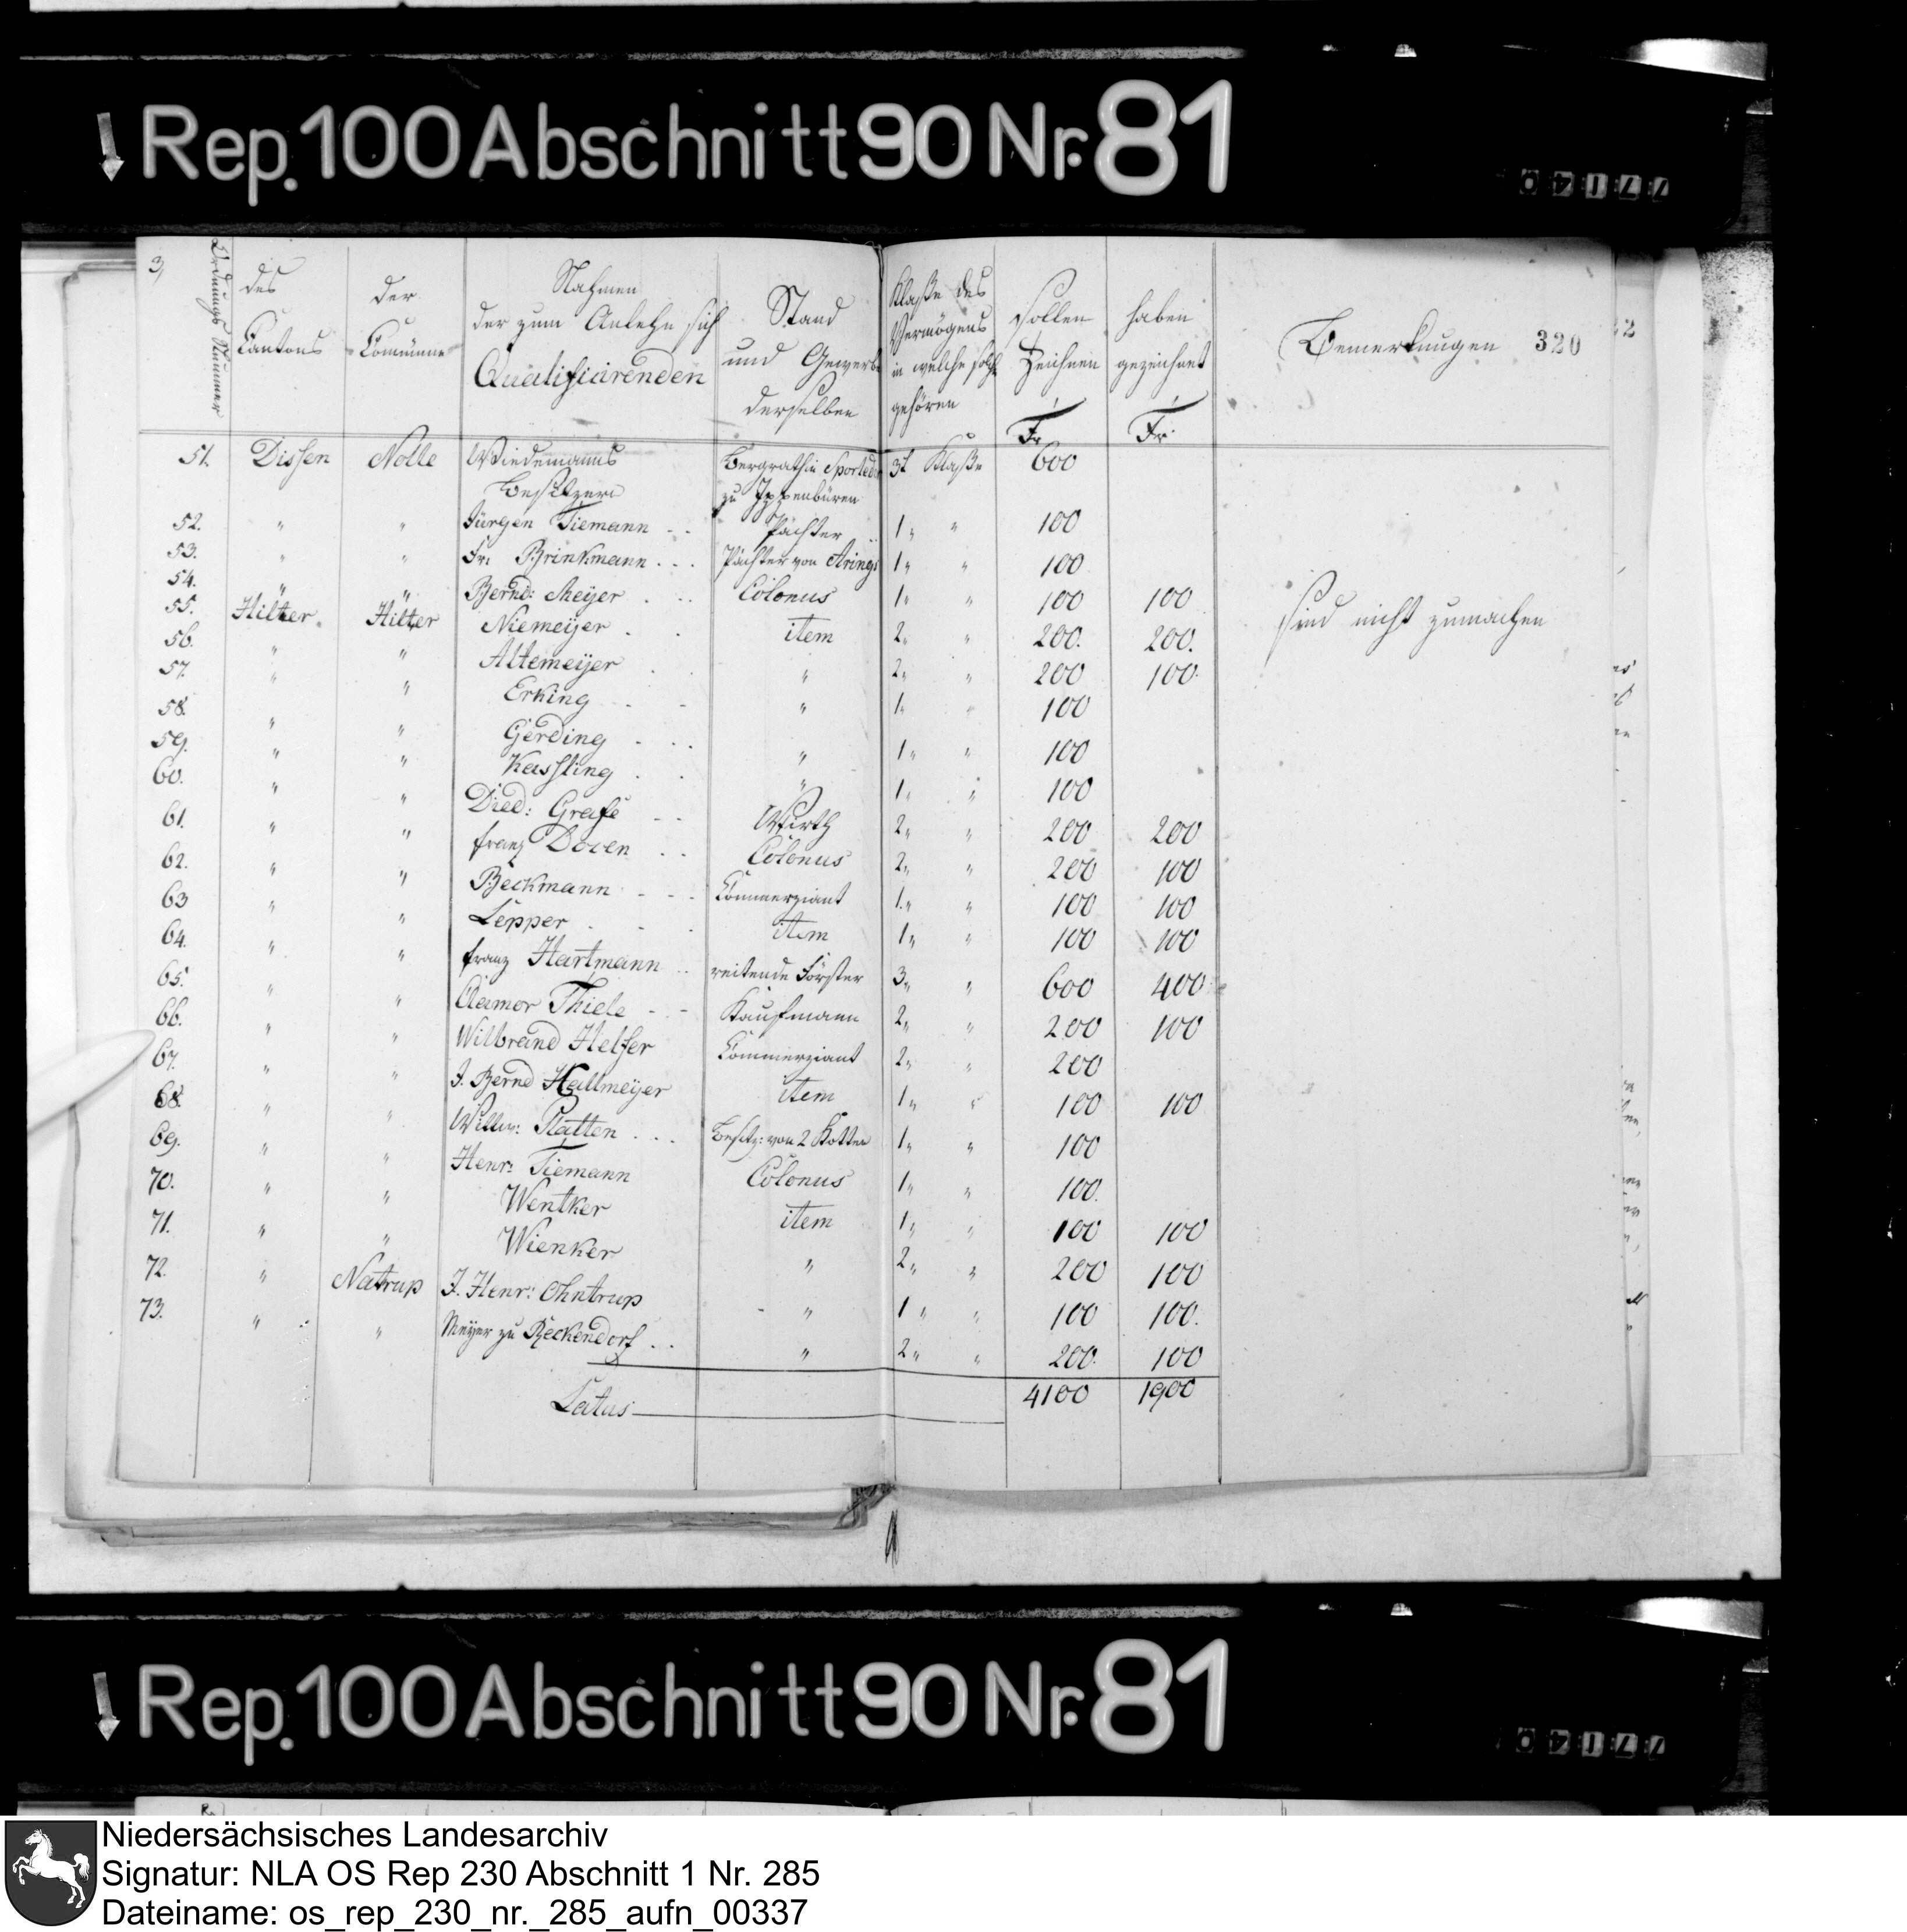 Rep. 100 Abschnitt 90 Nr. 81
3,
Ordnungs Nummer
des Cantons
der Commüne
Nahmen der zum Anlehn sich Qualifiairenden
Stand und Gewerbe derselben
Klaße des Vermögens in welche solche gehören
sollen Zeichnen Fr.
haben gezeichnet Fr.
Bemerkungen 320
51. Dissen Nolle Wiedemanns Besitzern Bergräthin zu Ippenbüren 3t Klaße 600
52. " " Jürgen Tiemann - - Pächter 1 " " 100
53. " " Fr: Brinkmann . . . Pächter von 1 " " 100
54. " " Bernd: Meÿer . . . Colonus 1 " " 100 100
55. Hilter Hilter Niemeÿer . . item 2 " " 200. 200.
56. " " Altemeÿer . . " 2 " " 200 100.
57. " " Erking - - " 1 " " 100
58. " " Gerding - . . " 1 " " 100
59. " " Kassling . . " 1 " " 100
60. " " Died: Grafe - - Wirth 2 " " 200 200
61. " " franz Doven . . Colonus 2 " " 200 100
62. " " Beckmann - - - Commerziant 1 " " 100 100
63 " " Lepper . . . item 1 " " 100 100
64. " " franz Hartmann . . reitende Förster 3 " " 600 400
65. " " Clamor Thiele - - Kaufmann 2 " " 200 100
66. " " Wilbrand Helfer Commerziant 2 " " 200
67. " " J. Bernd Hallmeÿer item 1 " " 100 100
68. " " Willm: Platten . . . Besitz: von 2 Kotten 1 " " 100
69. " " Henr: Tiemann Colonus 1 " " 100.
70. " " Wentker item 1 " " 100 100
71. " " Wienker " 2 " " 200 100
72. " Natrup J. Henr: Ohntrup - " 1 " " 100 100.
73. " " Meÿer zu Reckendorf . . " 2 " " 200. 100
Latus 4100 1900
sind nicht zumachen
Rep. 100 Abschnitt 90 Nr. 81
Niedersächsisches Landesarchiv
Signatur: NLA OS Rep 230 Abschnitt 1 Nr. 285
Dateiname: os_rep_230_nr._285_aufn_00337